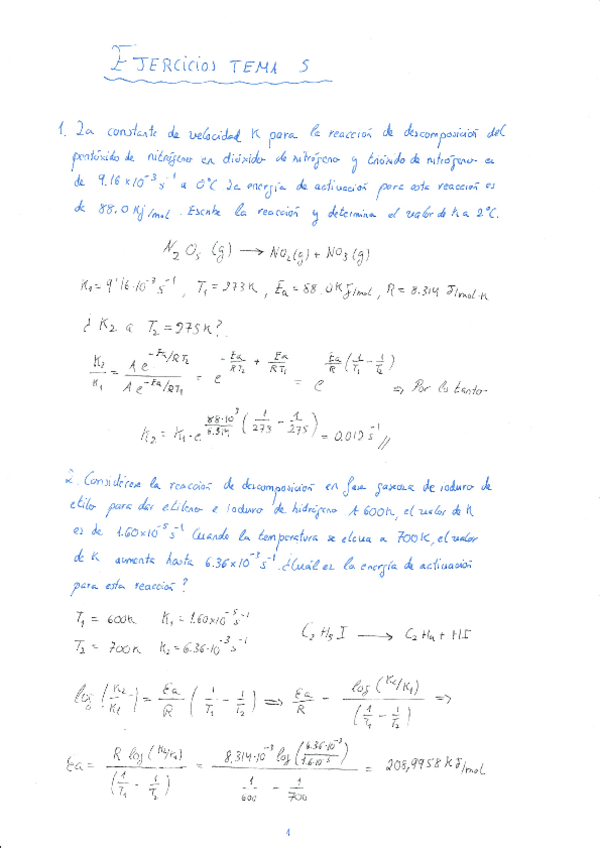 EJERCICIOS TEMA 5
1. La constante de velocidad K para la reacción de descomposición del
pentóxido de nitrógeno en dióxido de nitrógeno y trióxido de nitrógeno es
de 9.16×10⁻³ s⁻¹ a 0°C La energía de activación para esta reacción es
de 88.0 Kj/mol. Escribe la reacción y determina el valor de K a 2°C.
N₂O₅ (g) → NO₂(g) + NO₃(g)
K₁ = 9'16·10⁻³ s⁻¹, T₁ = 273K, Ea = 88.0KJ/mol, R = 8.314 J/mol·K
¿K₂ a T₂ = 275K?
K₂/K₁ = A e^(-Ea/RT₂) / A e^(-Ea/RT₁) = e^(-Ea/RT₂ + Ea/RT₁) = e^(Ea/R (1/T₁ - 1/T₂)) => Por lo tanto
K₂ = K₁·e^(88·10³/8.314 (1/273 - 1/275)) = 0.012 s⁻¹ //
2. Considérese la reacción de descomposición en fase gaseosa de ioduro de
etilo para dar etileno e ioduro de hidrógeno A 600K, el valor de K
es de 1.60×10⁻⁵ s⁻¹ Cuando la temperatura se eleva a 700K, el valor
de K aumenta hasta 6.36×10⁻³ s⁻¹. ¿Cuál es la energía de activación
para esta reacción?
T₁ = 600K K₁ = 1.60×10⁻⁵ s⁻¹
C₂H₅I → C₂H₄ + HI
T₂ = 700K K₂ = 6.36·10⁻³ s⁻¹
log (K₂/K₁) = Ea/R (1/T₁ - 1/T₂) => Ea/R = log (K₂/K₁) / (1/T₁ - 1/T₂) =>
Ea = R log (K₂/K₁) / (1/T₁ - 1/T₂) = 8,314·10⁻³ log (6.36·10⁻³/1.6·10⁻⁵) / (1/600 - 1/700) = 208,9958 KJ/mol
1